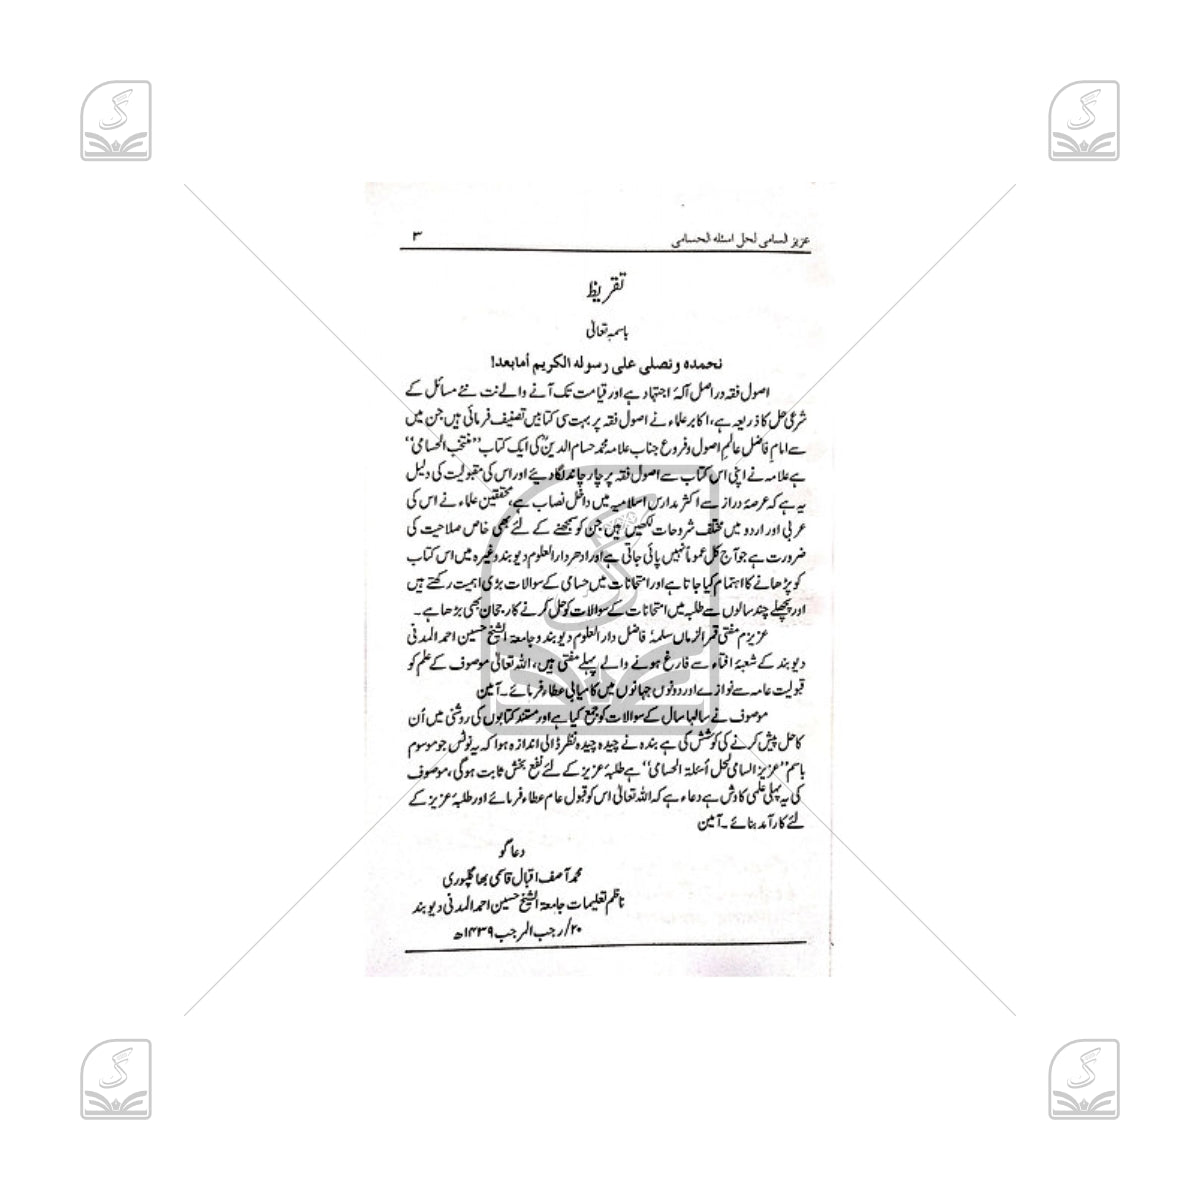 عزیز السامی لحل اسئلہ الحسامی ۳
تقریظ
باسمہ تعالٰی
نحمدہ ونصلی علی رسولہ الکریم أمابعد!
اصول فقہ دراصل آلۂ اجتہاد ہے اور قیامت تک آنے والے نت نئے مسائل کے
شرعی حل کا ذریعہ ہے، اکابر علماء نے اصول فقہ پر بہت سی کتابیں تصنیف فرمائی ہیں جن میں
سے امام فاضل عالمِ اصول وفروع جناب علامہ محمد حسام الدینؒ کی ایک کتاب ”منتخب الحسامی“
ہے علامہ نے اپنی اس کتاب سے اصول فقہ پر چار چاند لگا دیئے اور اس کی مقبولیت کی دلیل
یہ ہے کہ عرصۂ دراز سے اکثر مدارس اسلامیہ میں داخل نصاب ہے، محققین علماء نے اس کی
عربی اور اردو میں مختلف شروحات لکھیں ہیں جن کو سمجھنے کے لئے بھی خاص صلاحیت کی
ضرورت ہے جو آج کل عموماً نہیں پائی جاتی ہے اور ادھر دار العلوم دیوبند وغیرہ میں اس کتاب
کو پڑھانے کا اہتمام کیا جاتا ہے اور امتحانات میں حسامی کے سوالات بڑی اہمیت رکھتے ہیں
اور پچھلے چند سالوں سے طلبہ میں امتحانات کے سوالات کو حل کرنے کا رجحان بھی بڑھا ہے۔
عزیزم مفتی قمر الزماں سلمہٗ فاضل دار العلوم دیوبند وجامعۃ الشیخ حسین احمد المدنی
دیوبند کے شعبۂ افتاء سے فارغ ہونے والے پہلے مفتی ہیں، اللہ تعالٰی موصوف کے علم کو
قبولیت عامہ سے نوازے اور دونوں جہانوں میں کامیابی عطاء فرمائے۔ آمین
موصوف نے سالہا سال کے سوالات کو جمع کیا ہے اور مستند کتابوں کی روشنی میں اُن
کا حل پیش کرنے کی کوشش کی ہے بندہ نے چیدہ چیدہ نظر ڈالی اندازہ ہوا کہ یہ نوٹس جو موسوم
باسم ”عزیز السامی لحل أسئلۃ الحسامی“ ہے طلبۂ عزیز کے لئے نفع بخش ثابت ہوگی، موصوف
کی یہ پہلی علمی کاوش ہے دعاء ہے کہ اللہ تعالٰی اس کو قبول عام عطاء فرمائے اور طلبۂ عزیز کے
لئے کار آمد بنائے۔ آمین
دعا گو
محمد آصف اقبال قاسمی بھاگلپوری
ناظم تعلیمات جامعۃ الشیخ حسین احمد المدنی دیوبند
۲۰/رجب المرجب ۱۴۳۹ھ